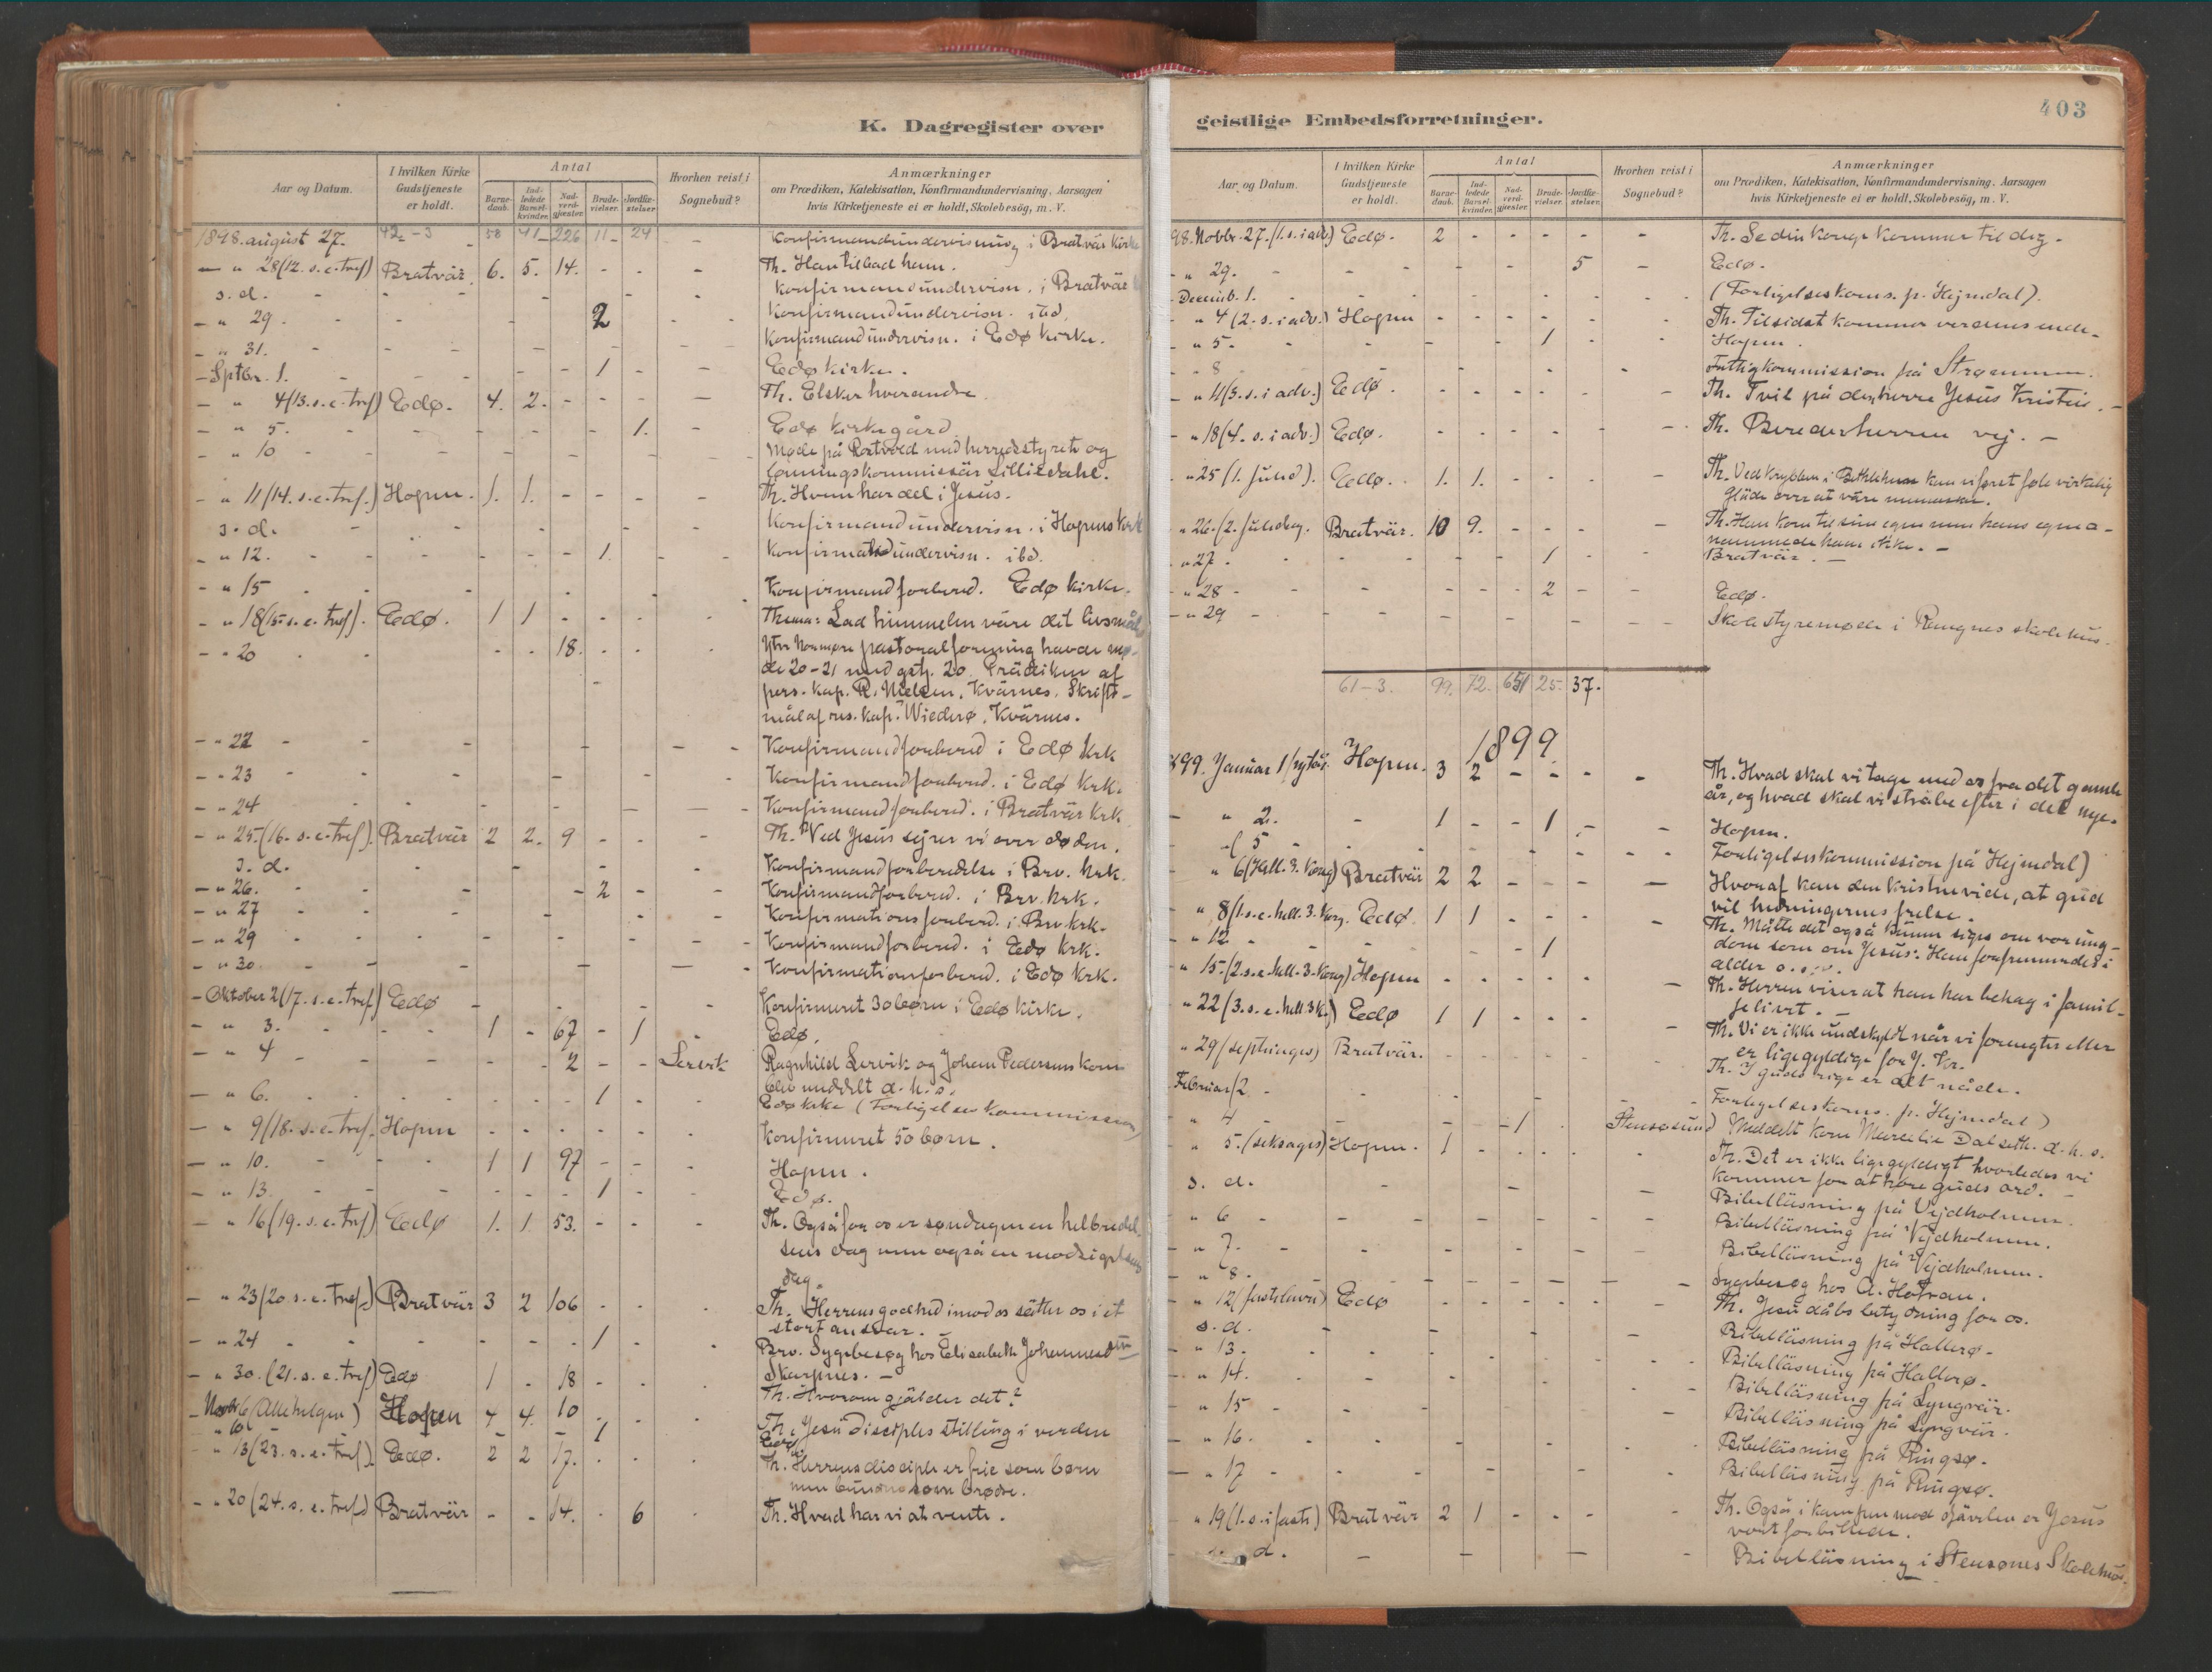 K. Dagregister over
Aar og Datum. I hvilken Kirke Gudstjeneste er holdt. Antal Hvorhen reist i Sognebud? Anmærkninger om Prædiken, Katekisation, Konfirmandundervisning, Aarsagen hvis Kirketjeneste ei er holdt, Skolebesög, m. V.
Barnedaab. Indledede Barselkvinder. Nadverdgjæster. Brudevielser. Jordfæstelser.
1898. august 27. 42-3 58 41 226 11 24 Konfirmandundervisning i Bratvär Kirke
" 28 (12. s. e. tref) Bratvär. 6. 5. 14. Th. Han tilbad ham.
s. d. Konfirmandundervisn. i Bratvär
" 29. 2 Konfirmandundervisn. ibd.
" 31. Konfirmandundervisn. i Edø kirke.
Sptbr. 1. 1 Edø kirke.
" 4 (13. s. e. tref) Edø. 4. 2. Th. Elsker hverandre
" 5. 1. Edø kirkegård
" 10 Møde på Rostvold med herredsstyret og
lønningskommissär Lilliedahl.
" 11 (14. s. e. tref.) Hopen. 1. 1. Th. Hvem har del i Jesus.
s. d. Konfirmandundervisn. i Hopens Kirk
" 12. 1. Konfirmandundervisn. ibd.
" 15 Konfirmandforbered. Edø kirke.
" 18 (15. s. e. tref). Edø. 1 1 Thema: Lad himmelen være dit livsmål
" 20 18. Ytre Normøre pastoralforening havde mø-
de 20-21 med gstj. 20. Prädiken af
pers. kap. R. Nielsen, Kvärnes. Skrifte-
mål af res. kap. Wiederø, Kvärnes.
" 22 Konfirmandforbered i Edø krk
" 23 Konfirmandforbered. i Edø krk.
" 24 Konfirmandforbered. i Bratvär krk
" 25. (16. s. e. tref). Bratvär 2 2. 9 Th. Ved Jesus sejrer vi over døden.
s. d. Konfirmandforberedelse i Brv. krk.
" 26. 2 Konfirmandforbered. i Brv. krk.
" 27 Konfirmationsforbered. i Brv krk.
" 29 Konfirmandforbered. i Edø krk.
" 30. Konfirmationforbered. i Edø krk.
Oktober 2 (17. s. e. tref) Edø Konfirmeret 30 børn i Edø kirke.
" 3. 1 - 67 - 1 Edø.
" 4 2 Lervik Ragnhild Lervik og Johan Pedersens kone
blev meddelt d. h. s.
" 6. 1 Edø krke (Forligelseskommission)
" 9 (18. s. e. tref. Hopen Konfirmeret 50 børn.
" 10. 1 1 97 Hopen.
" 13. 1 Edø.
" 16 (19. s. e. tref) Edø 1. 1. 53. Th. Også for os er søndagen en helbredel-
sens dag men også en modsigelsens
dag.
" 23 (20 s. e. tref.) Bratvär 3 2 106 Th. Herrens godhed imod os sätter os i et
stort ansvar.
" 24 1 Brv. Sygebesøg hos Elisabeth Johannesdtr
Skarpnes.
" 30. (21. s. e. tref) Edø 1 - 18 Th. Hvorom gjälder det?
Novbr 6 (Allehelgen) Hopen 4 4. 10 Th. Jesu disciples stilling i verden
" 10. 1 Edø.
" 13 (23. s. e. tref). Edø. 2 2 17. Th. Herrens disciple er frie som børn
men bundne som brødre.
" 20 (24. s. e. tref.) Bratvär - - 14. - 6 Th. Hvad har vi at vente.
geistlige Embedsforretninger.
403
Aar og Datum. I hvilken Kirke Gudstjeneste er holdt. Antal Hvorhen reist i Sognebud? Anmærkninger om Prædiken, Katekisation, Konfirmandundervisning, Aarsagen hvis Kirketjeneste ei er holdt, Skolebesög, m. V.
Barnedaab. Indledede Barselkvinder. Nadverdgjæster. Brudevielser. Jordfæstelser.
98. Novbr. 27. (1. s. i adv.) Edø. 2 Th. Se din konge kommer til dig.
" 29. 5 Edø.
Decemb. 1. (Forligelseskoms. p. Hejmdal).
" 4 (2. s. i adv.) Hopen Th. Tilsidst kommer verdens ende.
" 5. 1 Hopen.
" 8 Fattigkommission på Strømmen.
" 11 (3. s. i adv.) Edø Th. Tvil på den herre Jesus Kristus.
" 18 (4. s. i adv.) Edø. Th. Bered herren vej.
" 25 (1. Juled). Edø. 1. 1. Th. Ved krybben i Bethlehem kan vi først føle virkelig
gläde over at være menneske.
" 26. (2. Juledag. Bratvär. 10 9. Th. Han kom til sine egne men hans egne a-
nammede ham ikke.
" 27. 1 Bratvär.
" 28 2 Edø.
" 29 Skolestyremøde i Rangnes skolehus.
61-3. 99. 72. 651 25. 37.
1899
1899. Januar 1/nytår. Hopen. 3 2 Th. Hvad skal vi tage med os fra det gamle
år, og hvad skal vi stræbe efter i det nye.
" 2. 1 - - 1 Hopen.
( 5 Forligelseskommission på Hejmdal)
" 6 (Hell. 3. Kong) Bratvär 2 2 Hvoraf kan den kristne vide, at gud
vil hedningernes frelse.
" 8 (1. s. e. hell. 3. Kong. Edø 1 1 Th. Måtte det også kunne siges om vor ung-
dom som om Jesus: Han forfremmedes i
alder o. s. v.
" 12 1
" 15. (2. s. e. hell. 3. Kong) Hopen Th. Herren viser at han har behag i famil-
jelivet.
" 22 (3. s. e. hell. 3 K.) Edø 1 1 Th. Vi er ikke undskyldt når vi fornegter eller
er ligegyldige for J. Kr.
" 29 (septuages) Bratvär. Th. I guds rige er alt nåde.
Februar 2 Forligelseskoms. p. Hejmdal)
" 4 1 Stensøsund) Meddelt kone Marselie Dalseth. d. h. s.
" 5. (seksages) Hopen. 1 Th. Det er ikke ligegyldigt hvorledes vi
kommer for at høre guds ord.
s. d. Bibelläsning på Vejdholmen.
" 6 Bibelläsning på Vejdholmen.
" 7. Bibelläsning på Vejdholmen.
" 8. Sygebesøg hos A. Hofran.
" 12 (fastelavn) Edø Th. Jesu dåbs betydning for os.
s. d. Bibelläsning på Hallerø.
" 13. Bibelläsning på Hallerø.
" 14. Bibelläsning på Lyngvär.
" 15 Bibelläsning på Lyngvär.
" 16. Bibelläsning på Ringsø.
" 17 Bibelläsning på Ringsø.
" 19 (1. s. i faste) Bratvär 2 1 Th. Også i kampen mod djävelen er Jesus
vort forbillede.
s. d. Bibelläsning i Stensønes Skolehus.